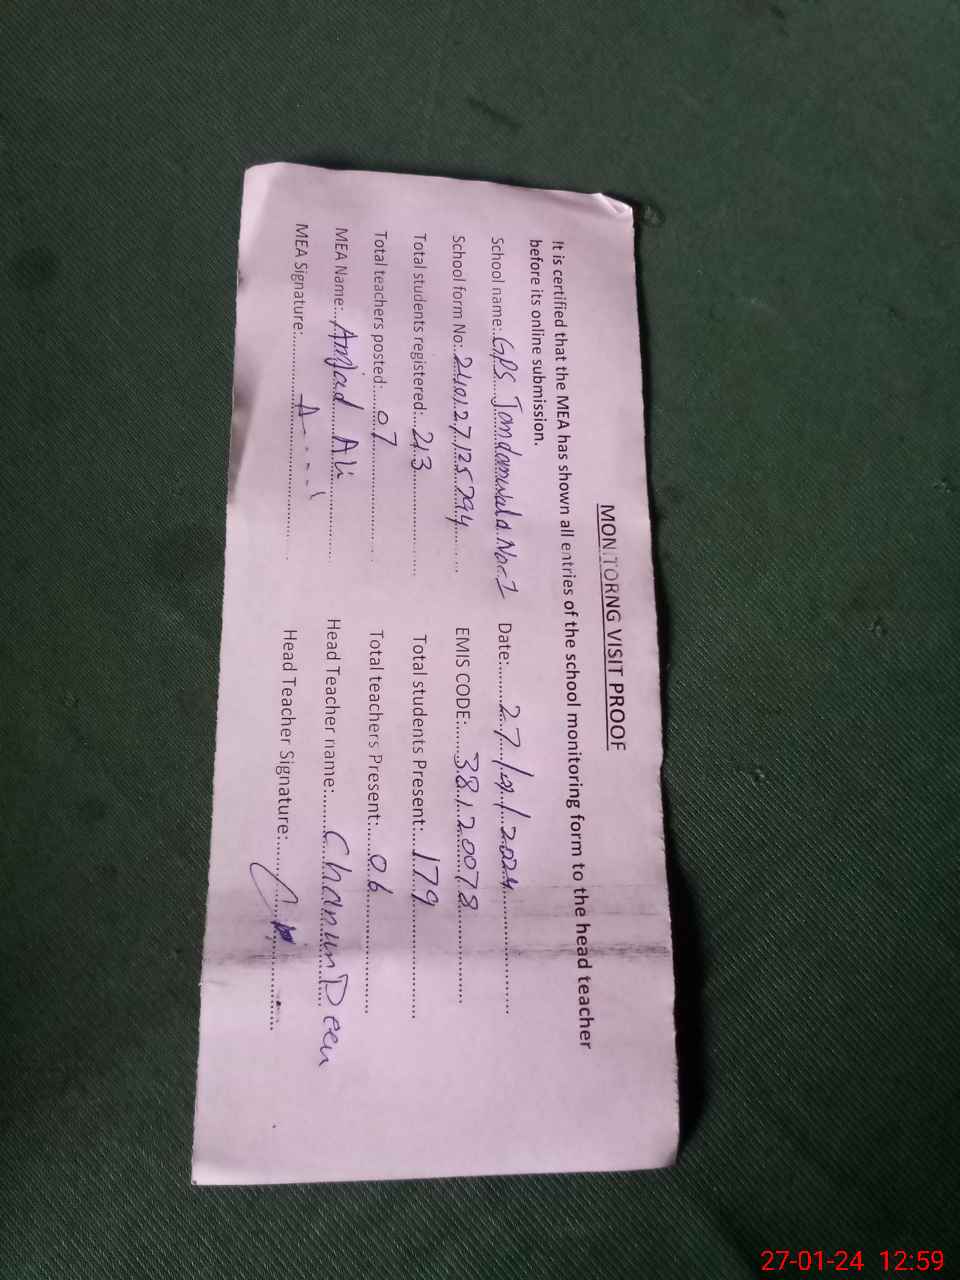 MONITORNG VISIT PROOF
It is certified that the MEA has shown all entries of the school monitoring form to the head teacher
before its online submission.
School name: GPS Jandanwala No.1 Date: 27/01/2024
School form No: 240127125794 EMIS CODE: 38120078
Total students registered: 213 Total students Present: 179
Total teachers posted: 07 Total teachers Present: 06
MEA Name: Amjad Ali Head Teacher name: Chanun Deen
MEA Signature: Head Teacher Signature:
27-01-24 12:59